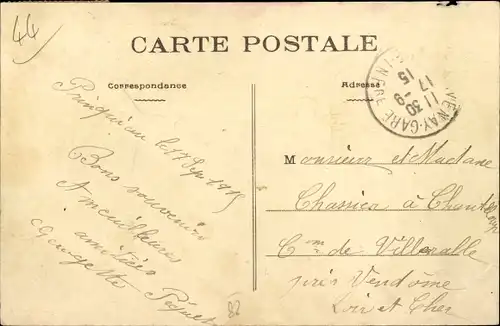 44
CARTE POSTALE
Correspondance
Adresse
VENAY-GARE
11 30
17 -9
15
le 17 Sep 1915
Bons souvenirs
et meilleures
amitiés
Georgette
Monsieur et Madame
Chasnier à
Cne de Villeralle
près Vendôme
Loir et Cher
82